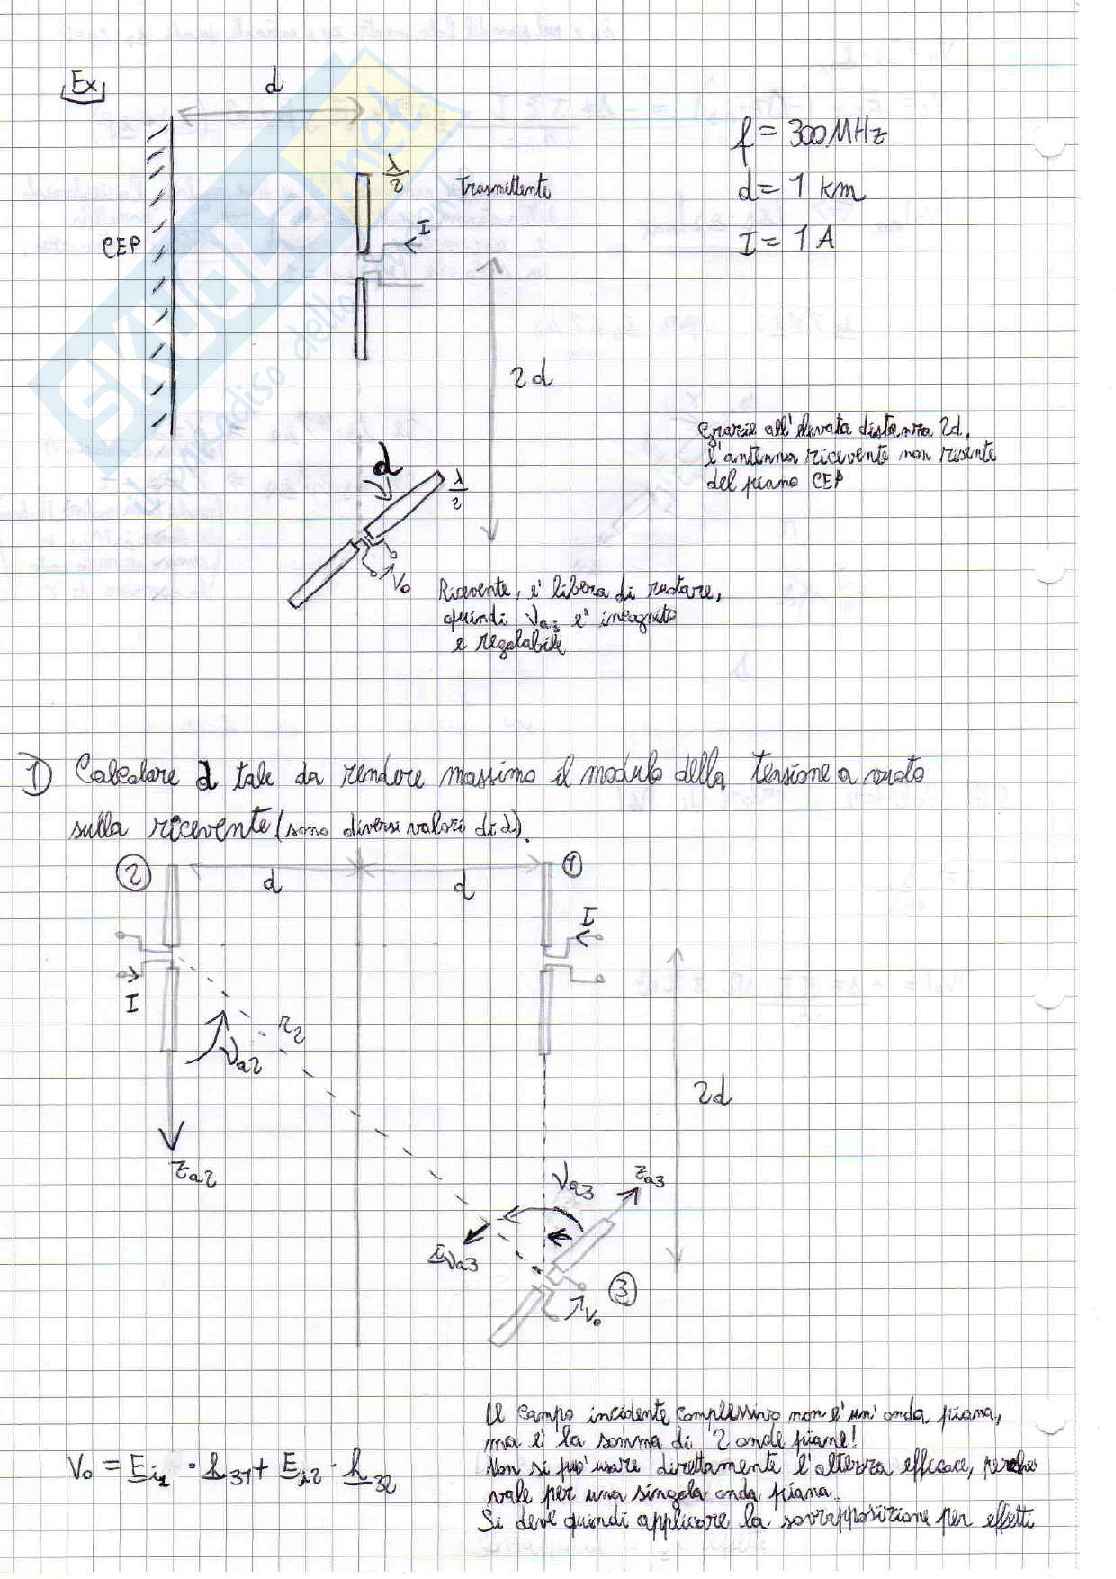 Ex
d
f = 300 MHz
d = 1 km
I = 1 A
λ/2
Trasmittente
I
CEP
2d
Grazie all'elevata distanza 2d,
l'antenna ricevente non risente
del piano CEP
α
λ/2
V₀
Ricevente, e' libera di ruotare,
quindi ϑa3 e' incognito
e regolabile
1) Calcolare α tale da rendere massimo il modulo della tensione a vuoto
sulla ricevente (sono diversi valori di α).
2
d
d
1
I
I
r₂
ϑa2
2d
za2
ϑa3
za3
iϑa3
3
V₀
Il campo incidente complessivo non e' un'onda piana,
ma e' la somma di 2 onde piane!
V₀ = Ei1 · h31 + Ei2 · h32
Non si puo' usare direttamente l'altezza efficace, perche
vale per una singola onda piana.
Si deve quindi applicare la sovrapposizione per effetti
SKUOLA.net
il paradiso dello studente